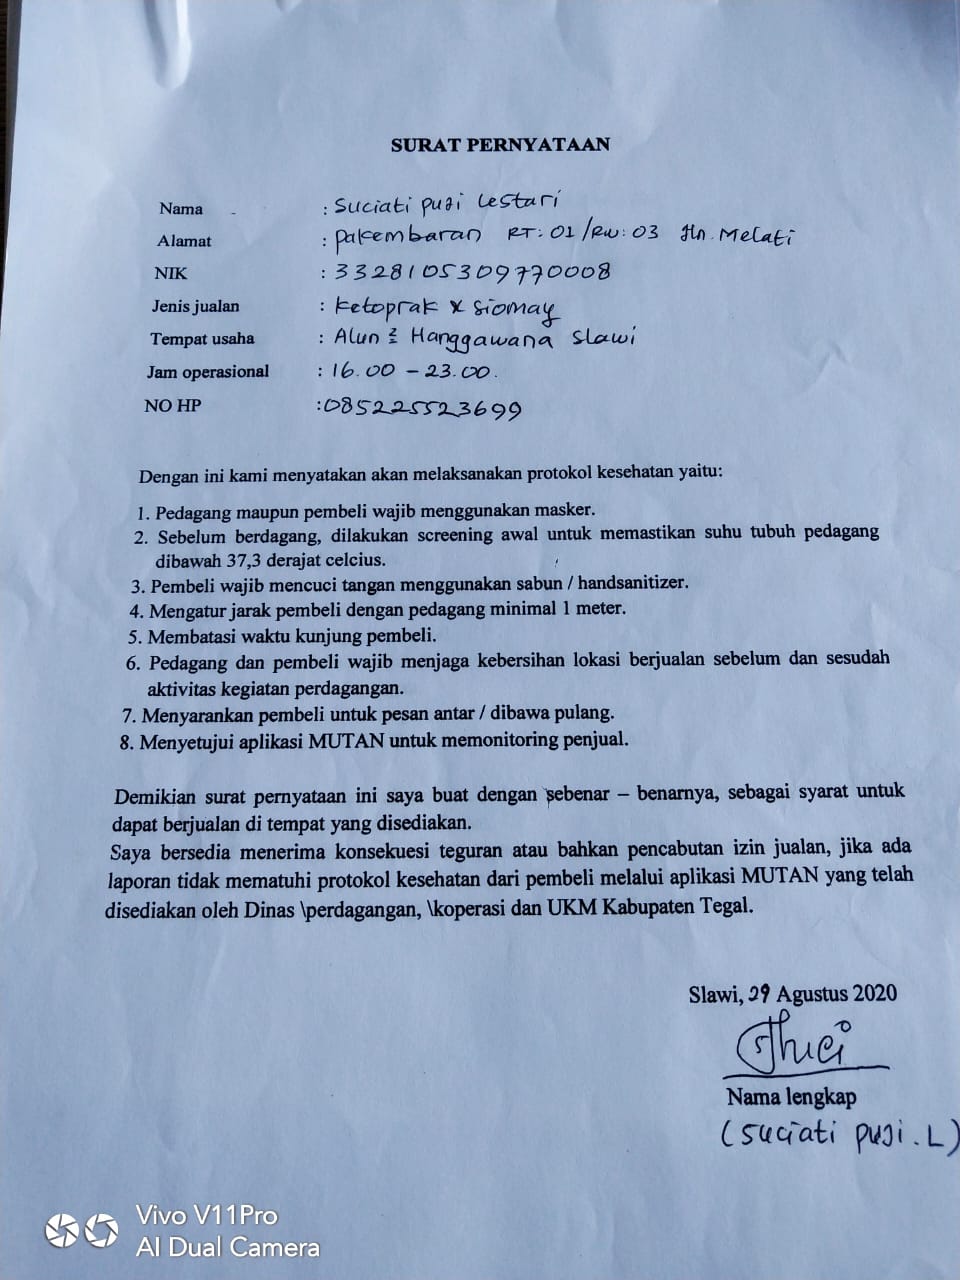 SURAT PERNYATAAN
Nama : Suciati puji Lestari
Alamat : pakembaran RT: 01/RW: 03 Jln. Melati
NIK : 3328105309770008
Jenis jualan : Ketoprak & Siomay
Tempat usaha : Alun 2 Hanggawana Slawi
Jam operasional : 16.00 - 23.00.
NO HP :085225523699
Dengan ini kami menyatakan akan melaksanakan protokol kesehatan yaitu:
1. Pedagang maupun pembeli wajib menggunakan masker.
2. Sebelum berdagang, dilakukan screening awal untuk memastikan suhu tubuh pedagang
dibawah 37,3 derajat celcius.
3. Pembeli wajib mencuci tangan menggunakan sabun / handsanitizer.
4. Mengatur jarak pembeli dengan pedagang minimal 1 meter.
5. Membatasi waktu kunjung pembeli.
6. Pedagang dan pembeli wajib menjaga kebersihan lokasi berjualan sebelum dan sesudah
aktivitas kegiatan perdagangan.
7. Menyarankan pembeli untuk pesan antar / dibawa pulang.
8. Menyetujui aplikasi MUTAN untuk memonitoring penjual.
Demikian surat pernyataan ini saya buat dengan sebenar – benarnya, sebagai syarat untuk
dapat berjualan di tempat yang disediakan.
Saya bersedia menerima konsekuesi teguran atau bahkan pencabutan izin jualan, jika ada
laporan tidak mematuhi protokol kesehatan dari pembeli melalui aplikasi MUTAN yang telah
disediakan oleh Dinas \perdagangan, \koperasi dan UKM Kabupaten Tegal.
Slawi, 29 Agustus 2020
Nama lengkap
(Suciati puji. L)
Vivo V11Pro
AI Dual Camera